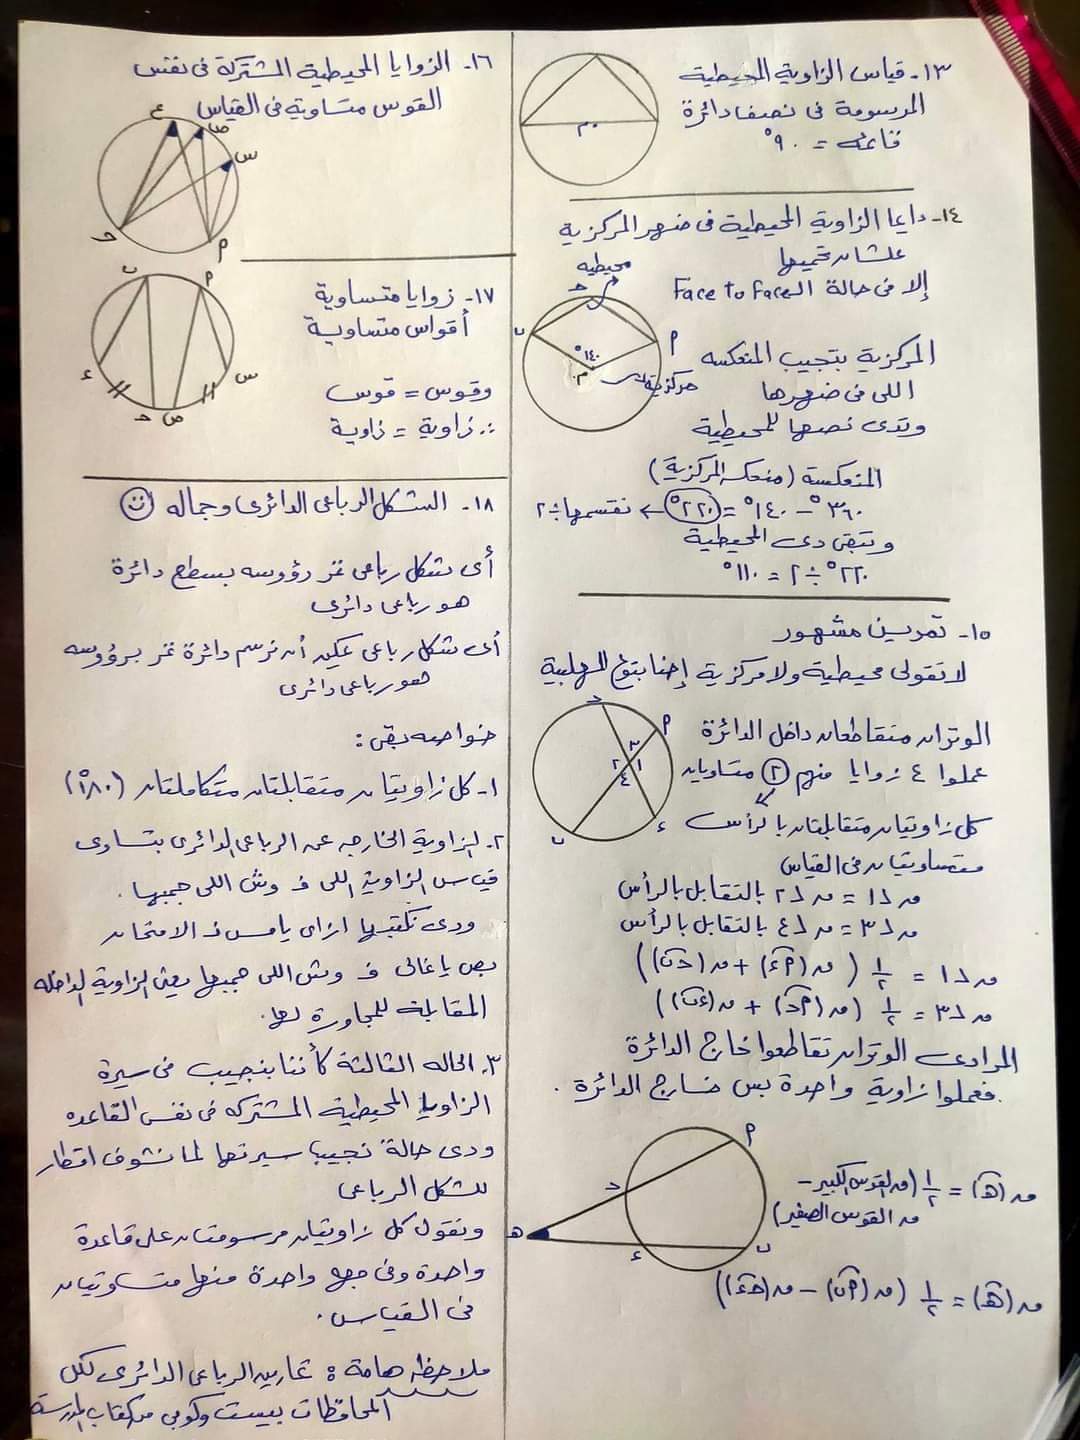 ١٣- قياس الزاوية المحيطية
المرسومة فى نصف دائرة
قائمة = ٩٠°
م
١٤- دايما الزاوية المحيطية فى ضهر المركزية
علشان تحميها
إلا فى حالة الـ Face to Face
محيطيه
ح
ب
م
١٤٠°
مركزية
المركزية بتجيب المنعكسه
اللى فى ضهرها
وتدى نصها للمحيطية
المنعكسة (منعكس المركزية)
٣٦٠° - ١٤٠° = ٢٢٠° ← نقسمها ÷ ٢
وتبقى دى المحيطية
٢٢٠° ÷ ٢ = ١١٠°
١٥- تمرين مشهور
لا تقولى محيطية ولا مركزية إحنا بتوع المهلبية
الوتران متقاطعان داخل الدائرة
عملوا ٤ زوايا منهم ٢ متساويان
كل زاويتان متقابلتان بالرأس
متساويتان فى القياس
ح
P
٣
٢ ١
٤
ء
ب
ق ∠١ = ق ∠٢ بالتقابل بالرأس
ق ∠٣ = ق ∠٤ بالتقابل بالرأس
ق ∠١ = ١/٢ (ق (Pء) + ق (حب))
ق ∠٣ = ١/٢ (ق (Pح) + ق (ءب))
المرادى الوتران تقاطعوا خارج الدائرة
فعملوا زاوية واحدة بس خارج الدائرة .
P
ح
ه
ء
ب
ق (ه) = ١/٢ (ق القوس الكبير -
ق القوس الصغير)
ق (ه) = ١/٢ (ق (Pب) - ق (حء))
١٦- الزوايا المحيطية المشتركة فى نفس
القوس متساوية فى القياس
ع
ص
س
ح
P
١٧- زوايا متساوية
أقواس متساوية
وقوس = قوس
∴ زاوية = زاوية
ب
P
ء
س
ح
ص
١٨- الشكل الرباعى الدائرى وجماله
أى شكل رباعى تمر رؤوسه بسطح دائرة
هو رباعى دائرى
أى شكل رباعى يمكن أن نرسم دائرة تمر برؤوسه
هو رباعى دائرى
خواصه بقى :
١- كل زاويتان متقابلتان متكاملتان (١٨٠°)
٢- الزاوية الخارجه عن الرباعى الدائرى بتساوى
قياس الزاوية اللى فـ وش اللى جمبها .
ودى نكتبها ازاى يا مس فـ الامتحان
بص يا غالى فـ وش اللى جمبها يعنى الزاوية الداخله
المقابلة للمجاورة لها .
٣- الحاله الثالثة كأننا بنجيب فى سيرة
الزوايا المحيطية المشتركه فى نفس القاعده
ودى حالة نجيب سيرتها لما نشوف اقطار
للشكل الرباعى
ونقول كل زاويتان مرسومتان على قاعدة
واحدة وفى جهه واحدة منها متساويتان
فى القياس .
ملاحظه هامة : تمارين الرباعى الدائرى لكل
المحافظات بيست وكوبى من كتاب المدرسة